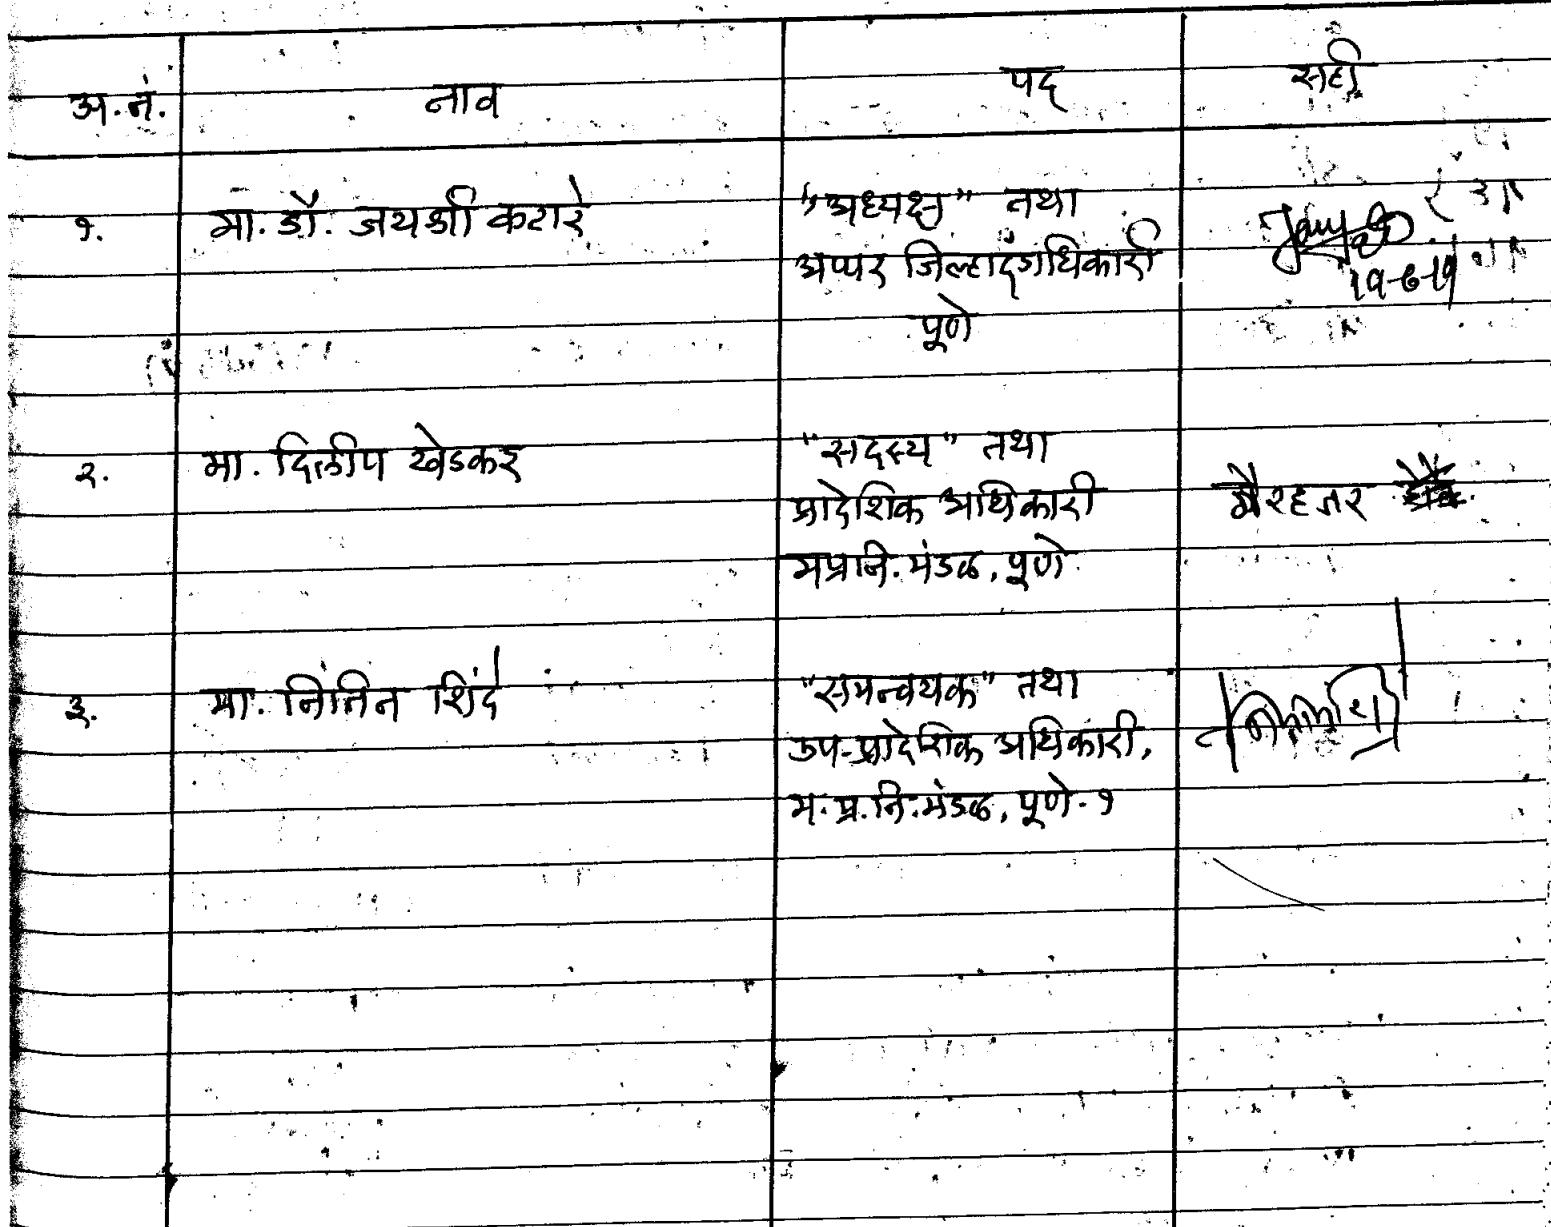 अ.नं. नाव पद सही
१. मा. डॉ. जयश्री कटारे "अध्यक्ष" तथा
अप्पर जिल्हादंडाधिकारी
पूणे
२. मा. दिलीप खेडकर "सदस्य" तथा
प्रादेशिक अधिकारी गैरहजर
मप्रनि. मंडळ, पूणे
३. मा. नितिन शिंदे "समन्वयक" तथा
उप-प्रादेशिक अधिकारी,
म.प्र.नि.मंडळ, पूणे-१